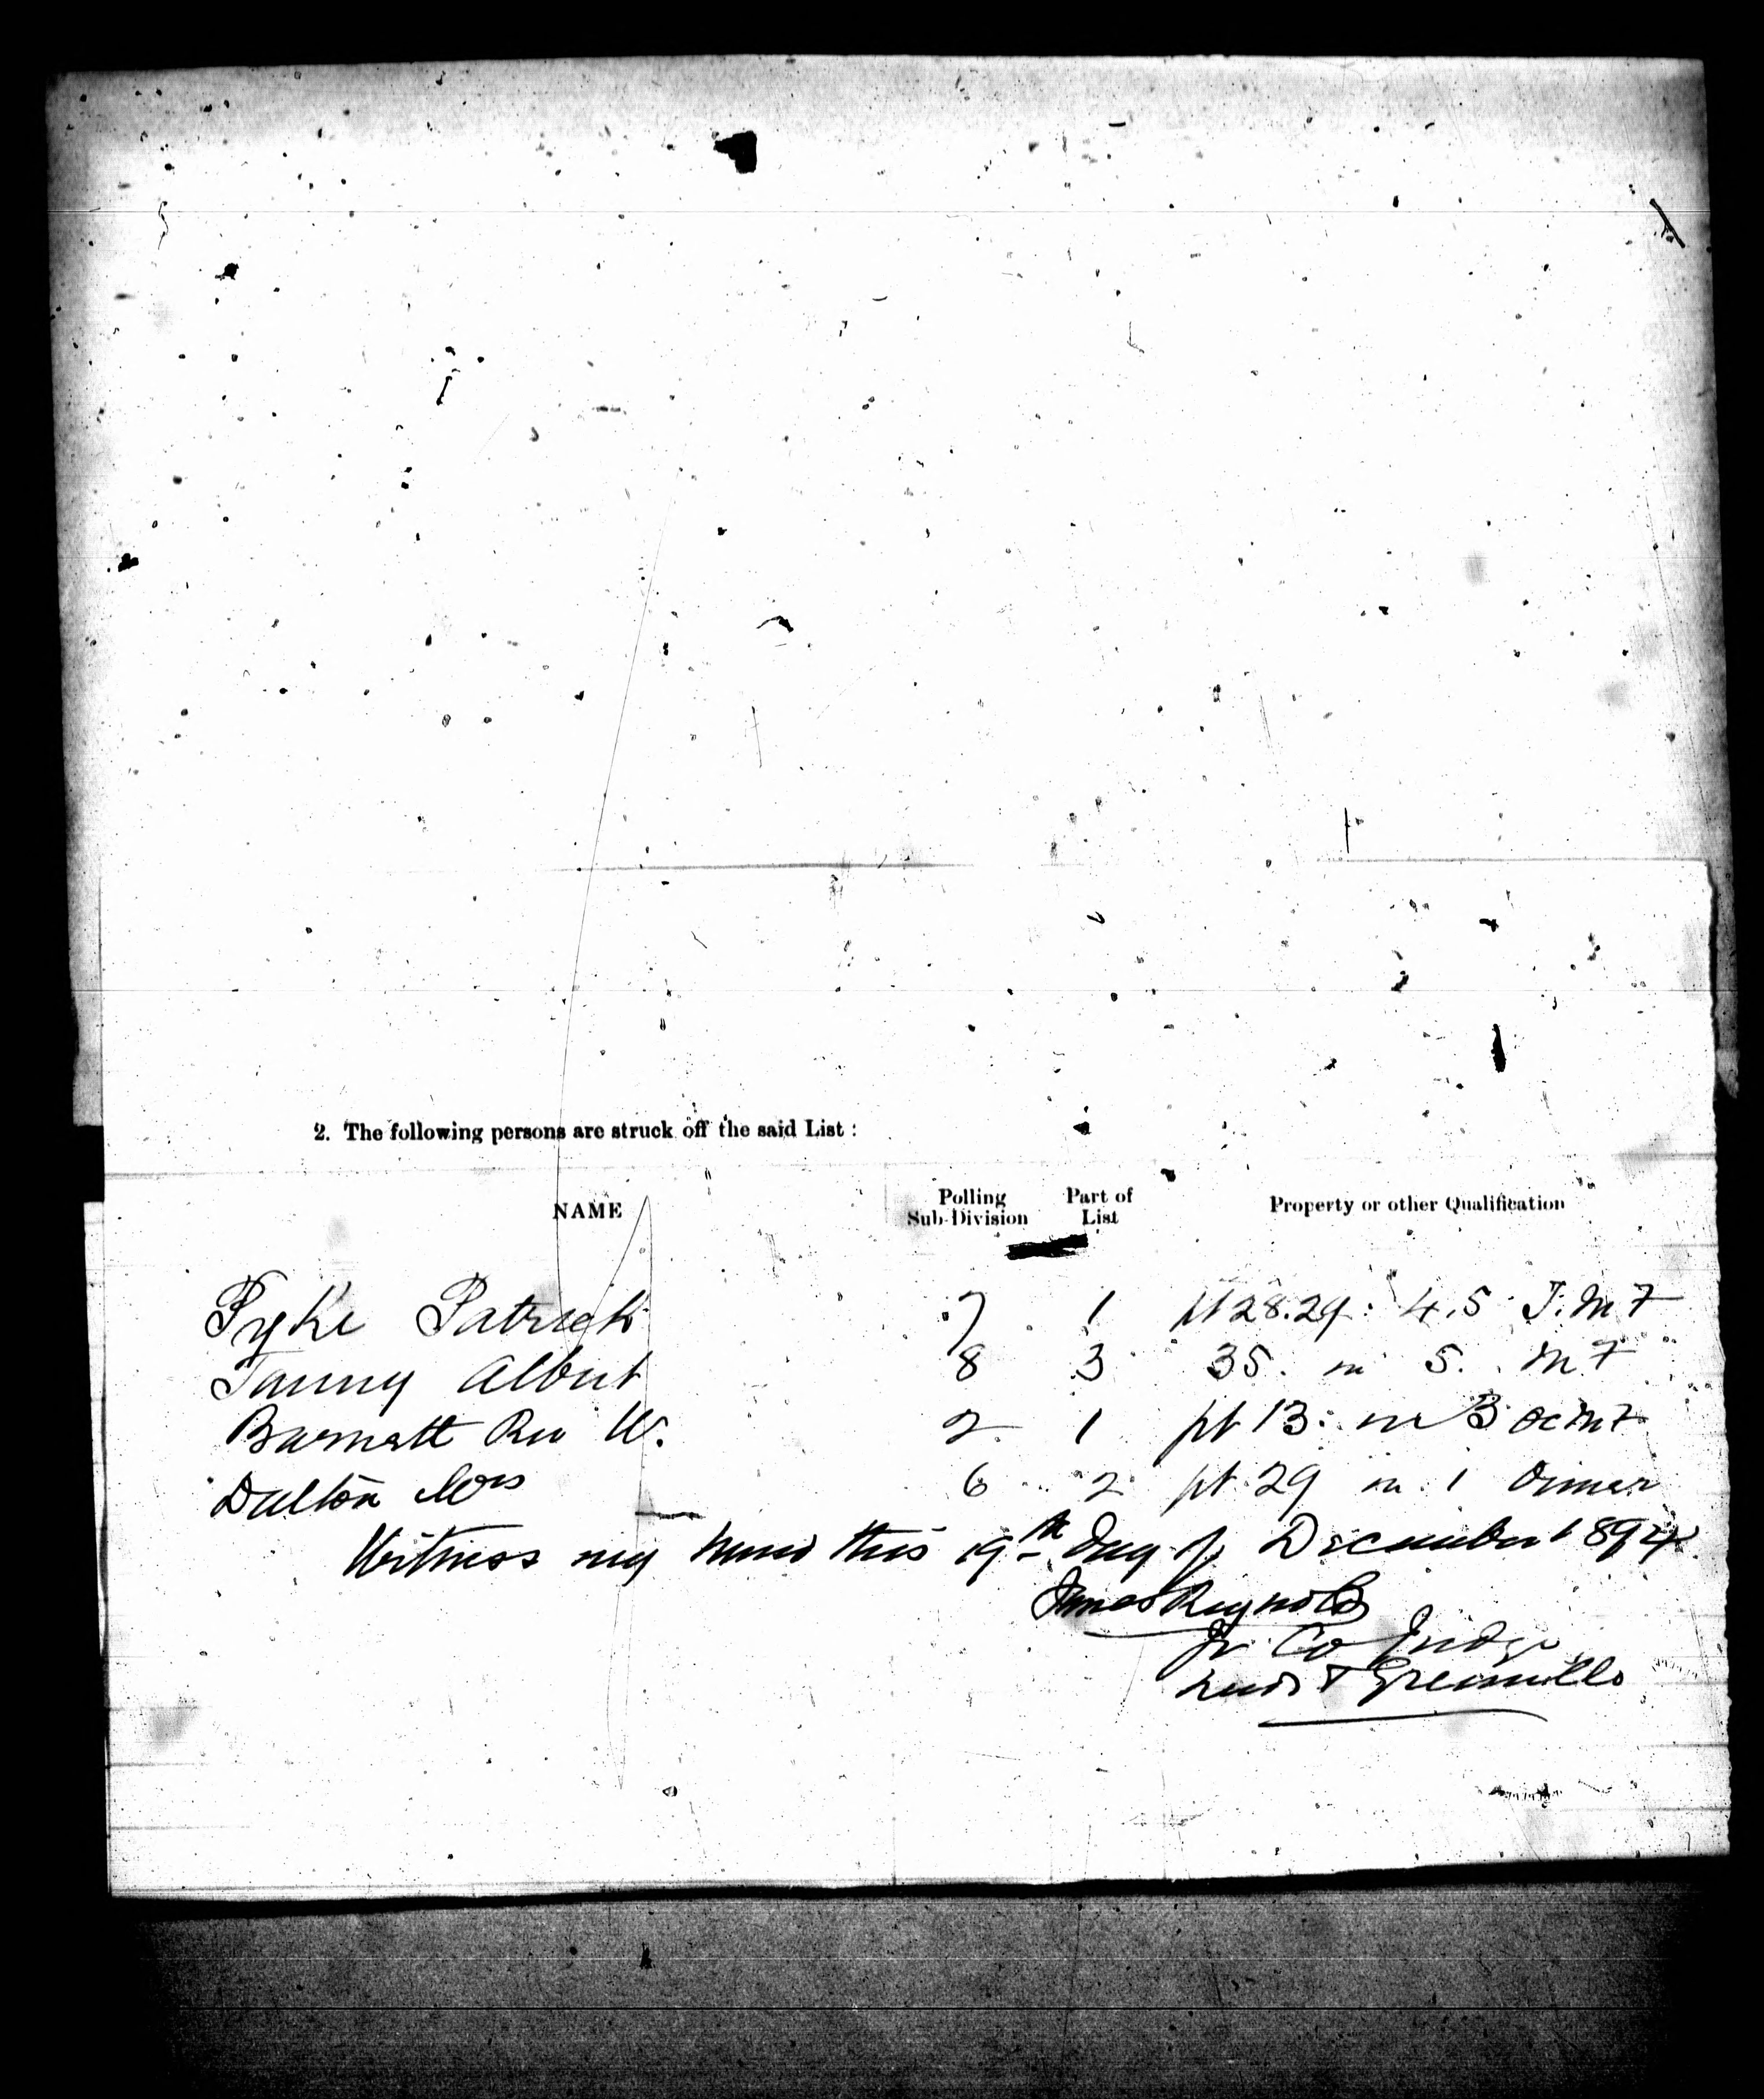 2. The following persons are struck off the said List :
NAME
Polling Sub-Division
Part of List
Property or other Qualification
Pyke Patrick 7 1 pt 28.29 : 4.5 J. M F
Tanny Albert 8 3 35. in 5. M F
Barnatt Rev W. 2 1 pt 13 in 3 oc M F
Dalton 6 2 pt 29 in 1
Witness my hand this 19th day of December 1894
James Reynolds
Jr Co Judge
Leeds & Grenville